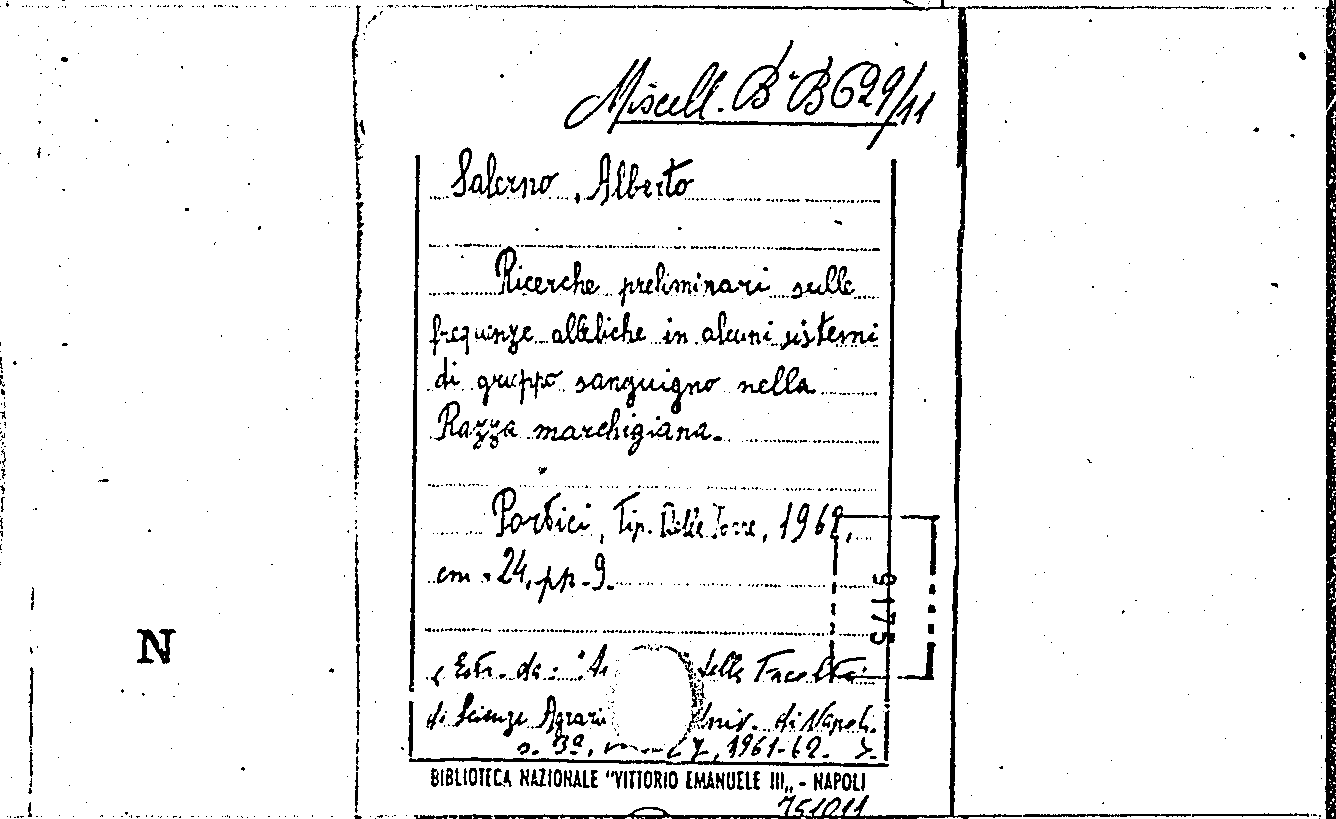 Miscell. B B 629/11
Salerno, Alberto
Ricerche preliminari sulle
frequenze alleliche in alcuni sistemi
di gruppo sanguigno nella
Razza marchigiana.
Portici, Tip. Delle Torre, 1962,
cm. 24, pp. 9.
9175
N
Estr. da: della Facoltà
di Scienze Agrari Univ. di Napoli.
s. 3ª, 1961-62.
BIBLIOTECA NAZIONALE "VITTORIO EMANUELE III„ - NAPOLI
751011